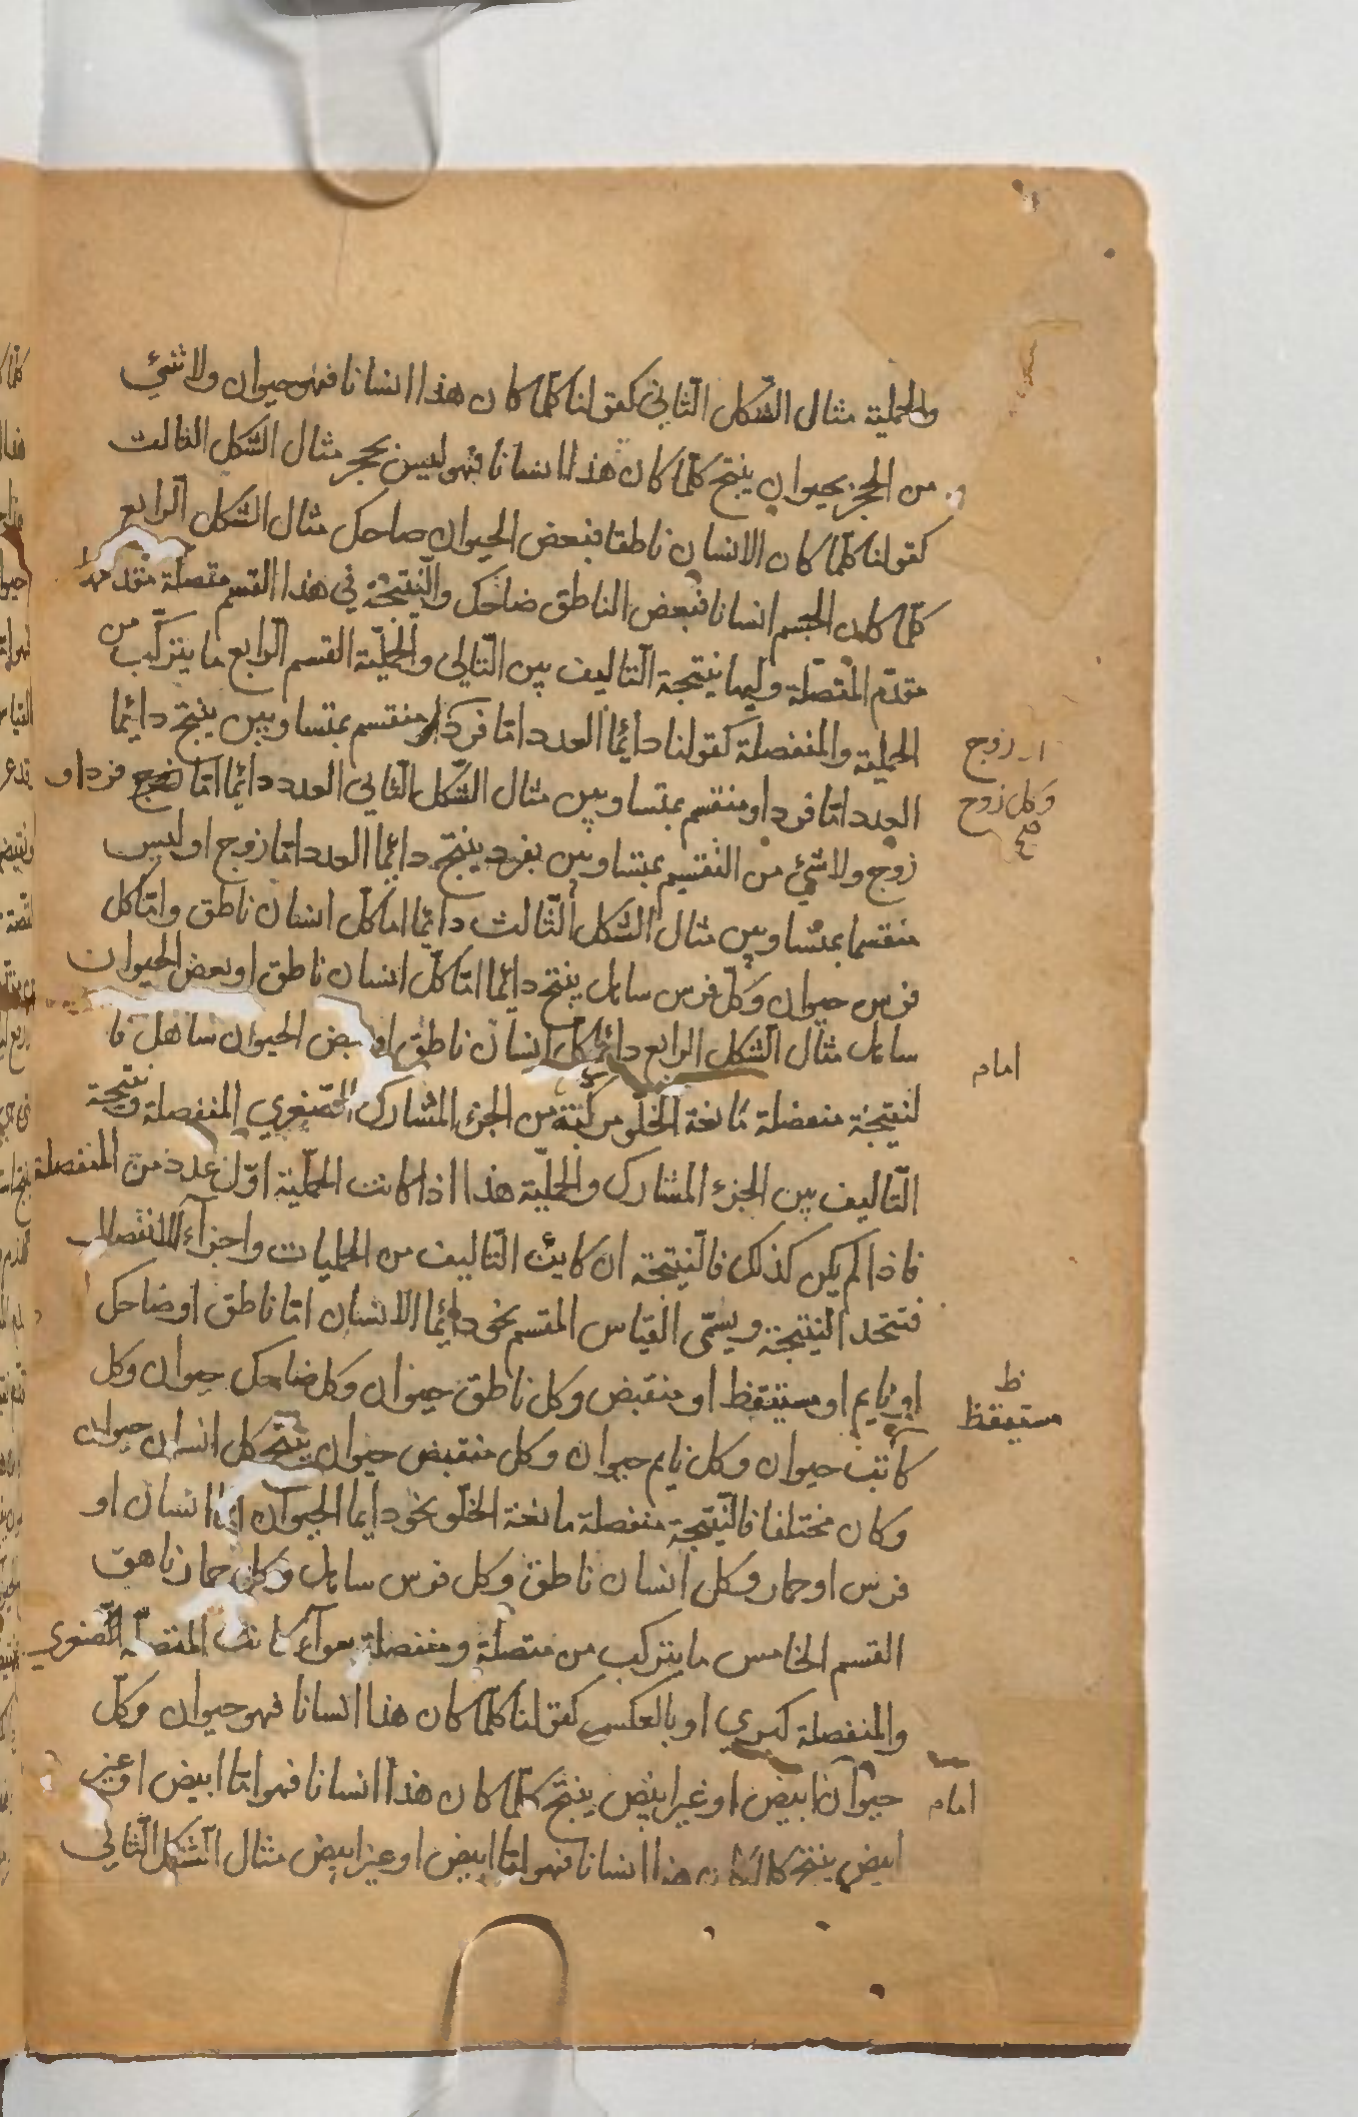 والحملية مثال الشكل الثاني كقولنا كلما كان هذا انسانا فهو حيوان ولا شئ
من الحجر بحيوان ينتج كلما كان هذا انسانا فهو ليس بحجر مثال الشكل الثالث
كقولنا كلما كان الانسان ناطقا فبعض الحيوان ضاحك مثال الشكل الرابع
كلما كان الجسم انسانا فبعض الناطق ضاحك والنتيجة في هذا القسم متصلة مقدمها
مقدم المتصلة وليها نتيجة التاليف بين التالي والحملية القسم الرابع ما يتركب من
الحملية والمنفصلة كقولنا دائما العدد اما فرد او منقسم بمتساويين ينتج دائما
العدد اما فرد او منقسم بمتساويين مثال الشكل الثاني العدد دائما اما فرد او
زوج ولا شئ من المنقسم بمتساويين بفرد ينتج دائما العدد اما زوج او ليس
منقسما بمتساويين مثال الشكل الثالث دائما اما كل انسان ناطق واما كل
فرس حيوان وكل فرس ساهل ينتج دائما اما كل انسان ناطق او بعض الحيوان
ساهل مثال الشكل الرابع دائما كل انسان ناطق او بعض الحيوان ساهل فا
لنتيجة منفصلة مانعة الخلو مركبة من الجزء المشارك الصغري المنفصلة ونتيجة
التاليف بين الجزء المشارك والحملية هذا اذا كانت الحملية اول عدد من المنفصلة
فاذا لم يكن كذلك فالنتيجة ان كانت التاليف من الحمليات واجزاء الانفصال
فتتحد النتيجة ويسمى القياس المقسم نحو دائما الانسان اما ناطق او ضاحك
او نايم او مستيقظ او منقبض وكل ناطق حيوان وكل ضاحك حيوان وكل
كاتب حيوان وكل نايم حيوان وكل منقبض حيوان ينتج كل انسان حيوان
وكان مختلفا فالنتيجة منفصلة مانعة الخلو نحو دايما الحيوان اما انسان او
فرس او حمار وكل انسان ناطق وكل فرس ساهل وكل حمار ناهق
القسم الخامس ما يتركب من متصلة ومنفصلة سوآء كانت المتصلة الصغري
والمنفصلة كبري او بالعكس كقولنا كلما كان هذا انسانا فهو حيوان وكل
حيوان ابيض او غير ابيض ينتج كلما كان هذا انسانا فهو اما ابيض او غير
ابيض ينتج كلما كان هذا انسانا فهو اما ابيض او غير ابيض مثال الشكل الثاني
او زوج
وكل زوج
صح
امام
ظ
مستيقظ
امام